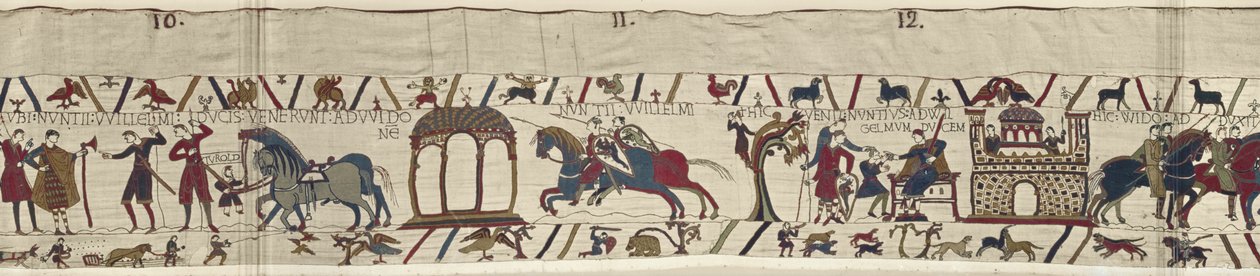 10.
11.
12.
VBI: NVNTII: VVILLELMI: DVCIS: VENERVNT: AD VVIDO
NE
TVROLD
NVNTII: VVILLELMI
+ HIC VENIT: NVNTIVS: AD WIL
GELMVM DVCEM
HIC: WIDO: AD DVXIT